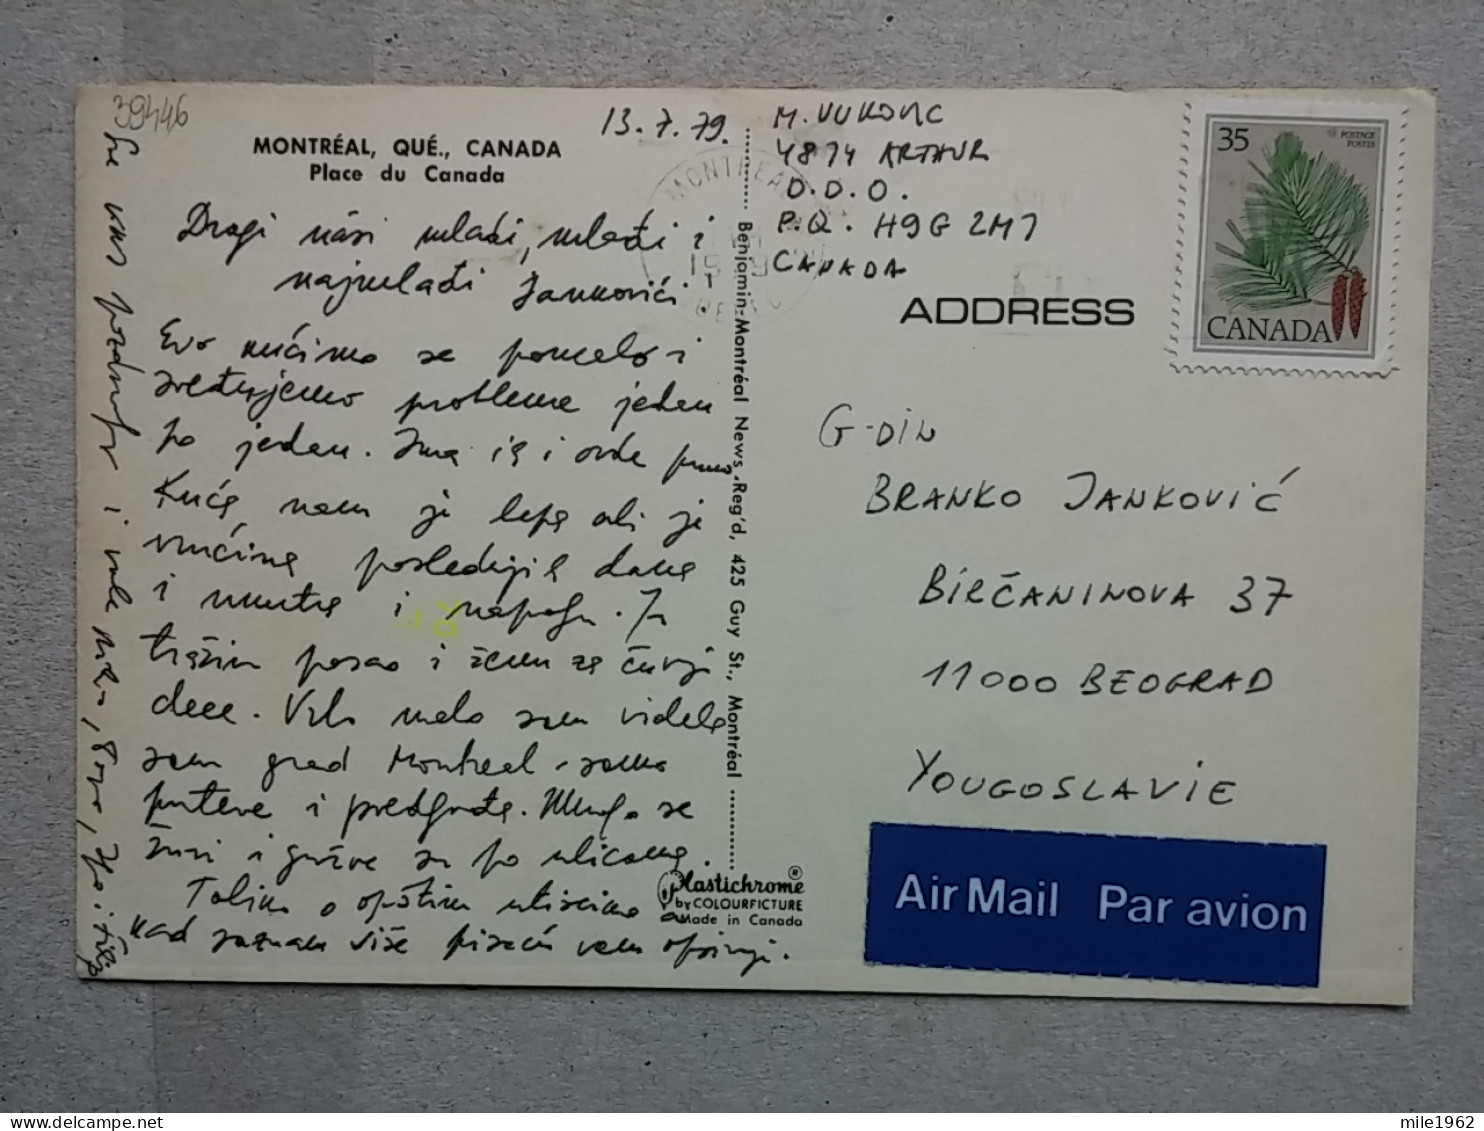 39446
MONTRÉAL, QUÉ., CANADA
Place du Canada
13.7.79.
Dragi naši mladi, mlađi i
najmlađi Jankovići
Evo mučimo se pomalo i
sređujemo probleme jedan
po jedan. Ima ih i ovde puno.
Kuća nam je lepa ali je
vrućina poslednjih dana
i unutra i napolju. Ja
tražim posao i ženu za čuvanje
dece. Vrlo malo sam videla
sam grad Montreal - samo
puteve i predgrađa. Mnogo se
žuri i gužve su po ulicama.
Toliko o opštim utiscima a
kad saznam više pisaću vam opširnije.
Sve vas pozdravlja i vole
M. VUKOVIC
4874 ARTHUR
D.D.O.
P.Q. H9G 2M7
CANADA
MONTREAL
QUEBEC
Benjamin-Montréal News Reg'd, 425 Guy St., Montréal
Plastichrome ®
by COLOURPICTURE
Made in Canada
35
POSTAGE
POSTES
CANADA
ADDRESS
G-DIN
BRANKO JANKOVIĆ
BIRČANINOVA 37
11000 BEOGRAD
YOUGOSLAVIE
Air Mail Par avion
mile1962